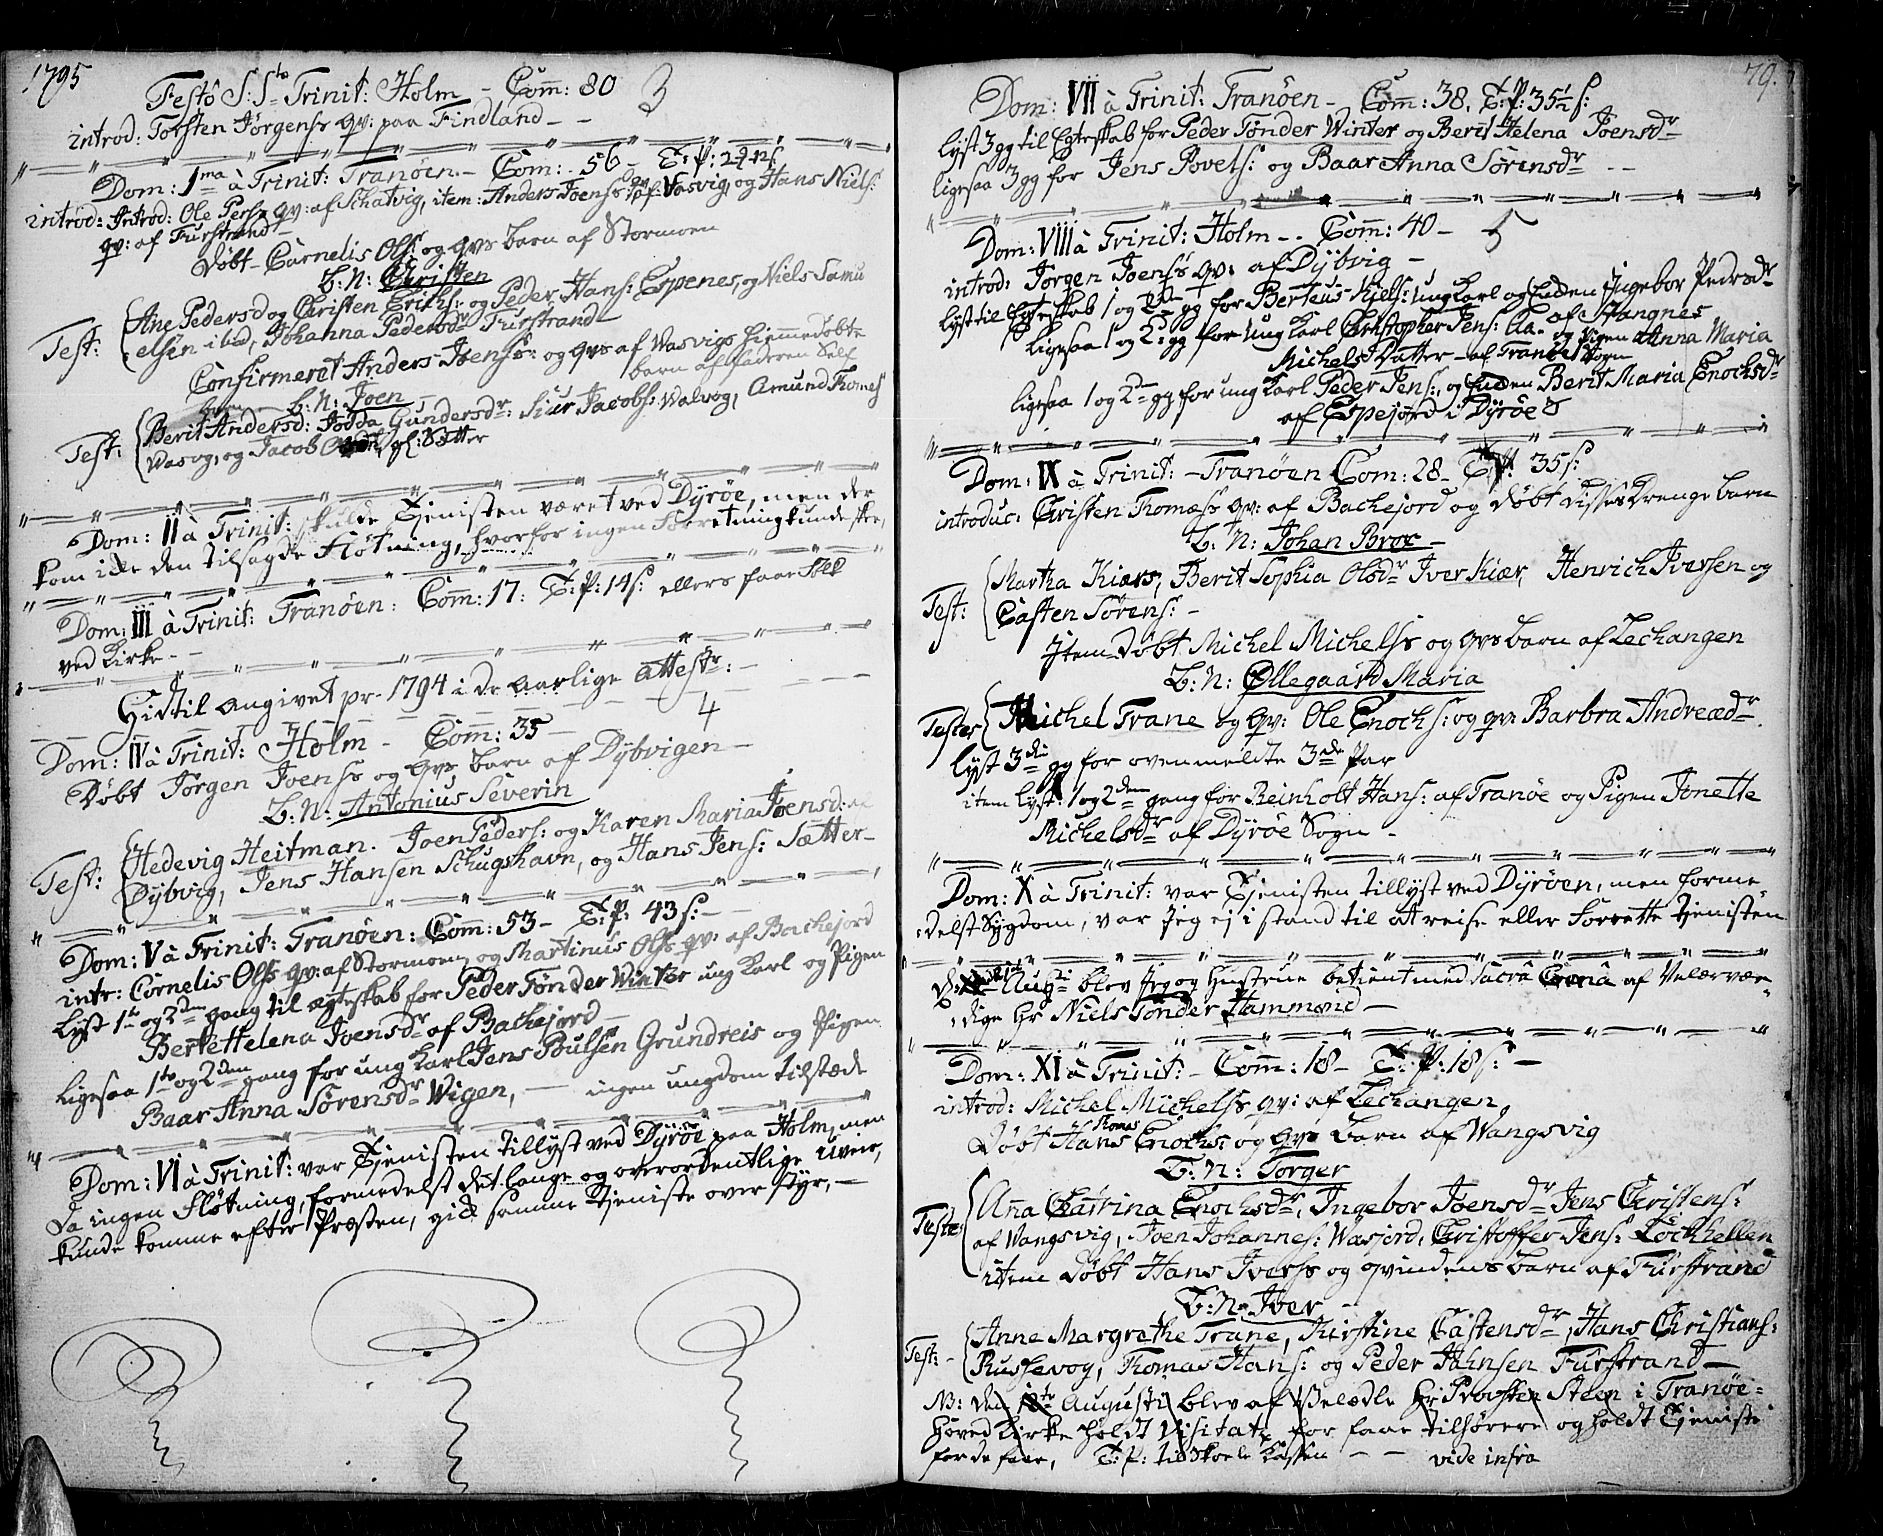 1795
Festo S: S^tæ Trinit: Holm - Com̄: 80 3
introd: Torsten Jørgens: qv: paa Findland - -
Dom: 1^ma à Trinit: Tranöen - Com: 56 - T: P: 24 12 s:
introd: Introd: Ole Pers: qv: af Schatvig, item: Anders Joens: qv: af: Vasvig, og Hans Niels:
qv: af Furstrand -
Döbt - Cornelis Ols: og qvs barn af Stormoen
B: N: Christen
Ane Pedersd og Christen Erichs: og Peder Hans: Espenes, og Niels Samu
Test: elsen ibid, Johanna Pedersd^r Furstrand -
Confirmeret Anders Joens: og qvs af Vasvigs hiemmedöbte
barn af faderen Self
B: N: Joen
Berit Andersd: Jodda Gundersd^r: Siur Jacobs: Valvog, Amund Thomes
Test: Vasvog, og Jacob af: Sætter
Dom: II à Trinit: skulde Tienisten været ved Dyröe, men der
kom icke den tilsagde Flötning, hvorfor ingen Forretning kunde skee,
Dom: III à Trinit: Tranöen: Com̄: 17: T: P: 14 s: ellers faae Folk
ved Kirke - -
Hidtil angivet pr. 1794 i de aarlige Attest^r: -
Dom: IV à Trinit: Holm - Com̄: 35 - 4
Döbt Jörgen Joens: og qvs barn af Dybvigen -
B: N: Antonius Severin
Hedevig Heitman. Joen Peders: og Karen Maria Joensd: af
Test: Dybvig, Jens Hansen Schugshavn, og Hans Jens: Sætter -
Dom: V à Trinit: Tranöen: Com̄: 53 - T: P: 43 s: -
intr: Cornelis Ols: qv: af Stormoen, og Martinus Ols: qv: af Bachejord
Lyst 1^te og 2^den gang til ægteskab for Peder Tönder Winter ung Karl og Pigen
Beret Helena Joensd^r af Bachejord -
Ligesaa 1^te og 2^den gang for ung Karl Jens Poulsen Grundreis og Pigen
Baar Anna Sörensd^r Wigen, - ingen ungdom tilstæde
Dom: VI à Trinit: var Tienisten tillyst ved Dyröe paa Holm, men
da ingen Flötning, formedelst det lange og overordentlige Uveir,
kunde komme efter Præsten, gick samme Tieniste over Styr, -
79.
Dom: VII à Trinit: Tranöen - Com̄: 38. T: P: 35½ s:
Lyst 3 gg til Egteskab for Peder Tønder Winter og Berit Helena Joensd^r
ligesaa 3 gg for Jens Povels: og Baar Anna Sörensd^r - -
Dom: VIII à Trinit: Holm - . Com̄: 40 - 5
introd: Jörgen Joens: qv: af Dybvig -
Lyst til Egteskab 1 og 2^den gg for Berteus Niels: Ung Karl og Enden Ingebor Pedrsd^r
af Stangnes
Ligesaa 1 og 2: gg for ung Karl Christopher Jens: Aa - og Pigen Anna Maria
Michels Datter - af Tranöe Sogn
ligesaa 1 og 2^den gg for ung Karl Peder Jens:, og Enden Berit Maria Enochsd^r
af Espejord i Dyröe S
Dom: IX à Trinit: - Tranöen Com: 28 - T: P: 35 s:
introduc: Christen Thomæs: qv: af Bachejord og döbt disses Drengebarn
B: N: Johan Broe -
Martha Kiærs, Berit Sophia Olsd^r Iver Kiær, Henrich Iversen og
Test: Casten Sörens: -
Item Döbt Michel Michels: og qvs barn af Lechangen
B: N: Øllegaard Maria
Testes Michel Trane og qv: Ole Enochs: og qv: Barbra Andreæd^r.
Lyst 3^die gg for ovenmeldte 3^de Par
item lyst: 1 og 2^den gang for Reinholt Hans: af Tranöe og Pigen Jonette
Michelsd^r af Dyröe Sogn -
Dom: X à Trinit: var Tienisten tillyst ved Dyröen, men forme-
delst Sygdom, var jeg ej i stand til at reise eller Forrette Tienisten
D: Aug: blev Jeg og Hustrue betient med Sacra Coena af Velærvær-
dige Hr Niels Tönder Hammond -
Dom: XI à Trinit: - Com̄: 18 - T: P: 18 s: -
introd: Michel Michels: qv: af Lechangen,
Döbt Hans Thomas Enochs: og qvs barn af Wangsvig
B: N: Torger
Ana Catrina Enochsd^r, Ingebor Joensd^r Jens Christens:
Testes af Wangsvig, Joen Johannes: Wasjord, Christoffer Jens: Lockhellen
item Döbt Hans Ivers: og qvindens barn af Furstrand
B: N: Iver -
Anne Margrethe Trane, Kirstine Castensd^r, Hans Christians:
Test: - Russevog, Thomas Hans: og Peder Johnsen Furstrand -
NB: den 18^te Augusti blev af Velædle Hr: Provsten Steen i Tranöe-
Hoved Kirke holdt Visitatz for faae tilhörere og holdt Tieniste
for de faae, T: P: til Skole Cassen - - vide infra